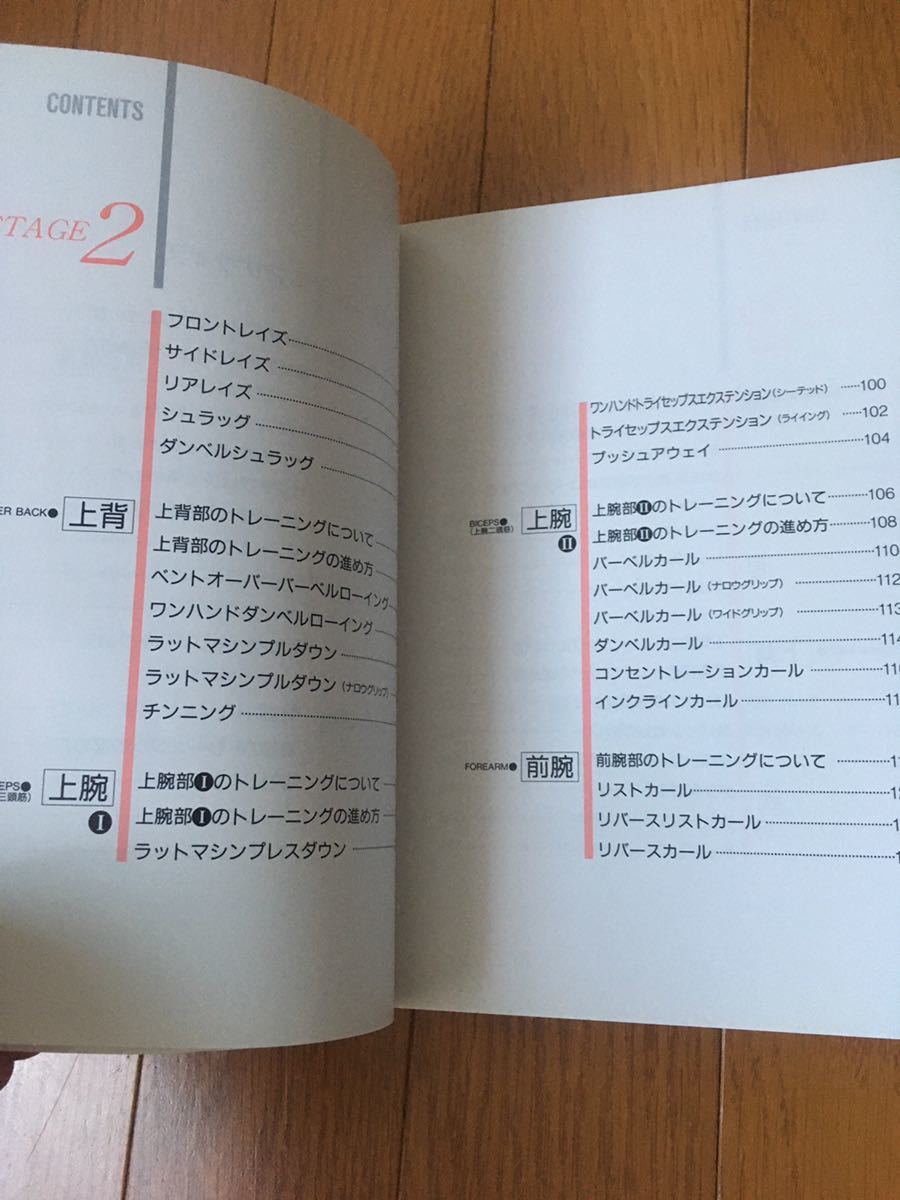 CONTENTS
STAGE 2
フロントレイズ
サイドレイズ
リアレイズ
シュラッグ
ダンベルシュラッグ
ER BACK● 上背
上背部のトレーニングについて
上背部のトレーニングの進め方
ベントオーバーバーベルローイング
ワンハンドダンベルローイング
ラットマシンプルダウン
ラットマシンプルダウン（ナロウグリップ）
チンニング
EPS● 上腕
三頭筋） Ⅰ
上腕部Ⅰのトレーニングについて
上腕部Ⅰのトレーニングの進め方
ラットマシンプレスダウン
ワンハンドトライセップスエクステンション（シーテッド） ……100
トライセップスエクステンション（ライイング） ……102
プッシュアウェイ ……104
BICEPS● 上腕
（上腕二頭筋） Ⅱ
上腕部Ⅱのトレーニングについて ……106
上腕部Ⅱのトレーニングの進め方 ……108
バーベルカール ……110
バーベルカール（ナロウグリップ） ……112
バーベルカール（ワイドグリップ） ……113
ダンベルカール ……114
コンセントレーションカール ……11
インクラインカール ……11
FOREARM● 前腕
前腕部のトレーニングについて ……1
リストカール ……12
リバースリストカール ……1
リバースカール ……1